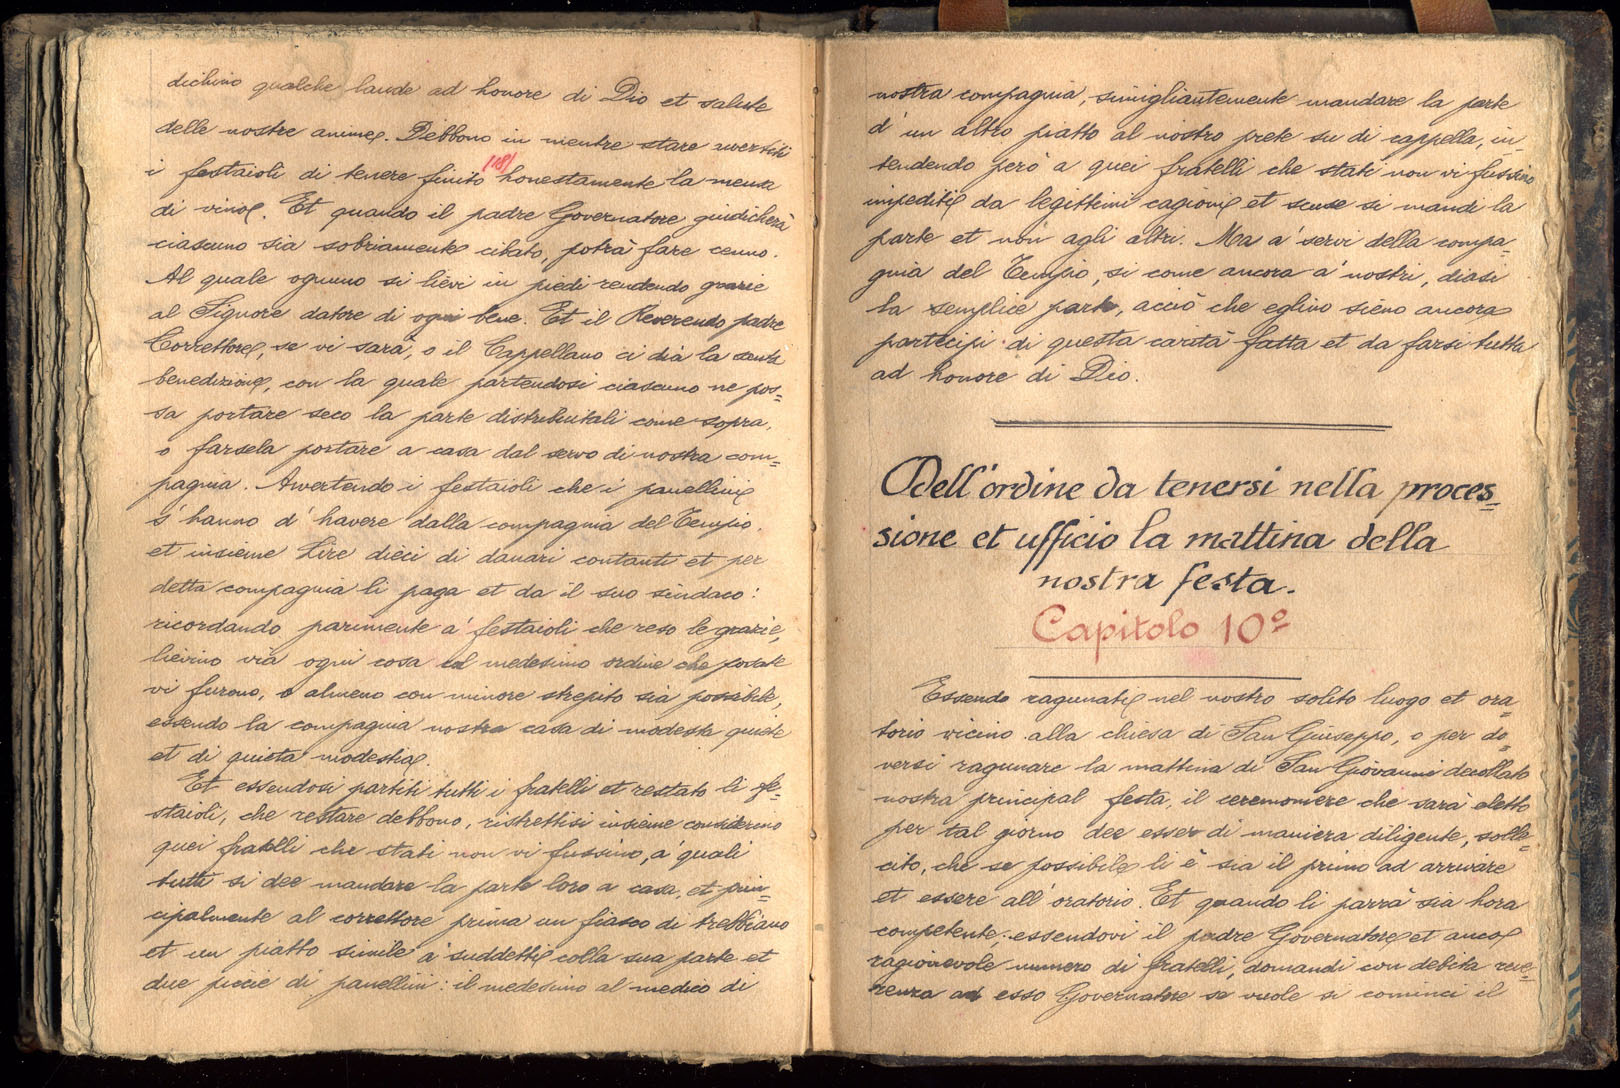 dichino qualche laude ad honore di Dio et salute
delle nostre anime. Debbono in mentre stare avertiti
i festaioli di tenere finito (18) honestamente la mensa
di vino. Et quando il padre Governatore giudicherà
ciascuno sia sobriamente cibato, potrà fare cenno.
Al quale ognuno si lievi in piedi rendendo grazie
al Signore datore di ogni bene. Et il Reverendo padre
Correttore, se vi sarà, o il Cappellano ci dia la santa
benedizione, con la quale partendosi ciascuno ne pos=
sa portare seco la parte distribuitali come sopra,
o farsela portare a casa dal servo di nostra com=
pagnia. Avvertendo i festaioli che i panellini
s'hanno d'havere dalla compagnia del Tempio.
et insieme Lire dieci di danari contanti et per
detta compagnia li paga et da il suo sindaco:
ricordando parimente a' festaioli che reso le grazie,
lievino via ogni cosa col medesimo ordine che portate
vi furono, o almeno con minore strepito sia possibile,
essendo la compagnia nostra casa di modesta quiete
et di quieta modestia.
Et essendosi partiti tutti i fratelli et restato li fe=
staioli, che restare debbono, ristrettisi insieme considerino
quei fratelli che stati non vi fussino, a' quali
tutti si dee mandare la parte loro a casa, et prin=
cipalmente al correttore prima un fiasco di trebbiano
et un piatto simile a' suddetti colla sua parte et
due piccie di panellini: il medesimo al medico di
nostra compagnia, simigliantemente mandare la parte
d'un altro piatto al nostro prete su di cappella, in_
tendendo però a quei fratelli che stati non vi fussino
impediti da legittimi cagioni et scuse si mandi la
parte et non agli altri. Ma a' servi della compa=
gnia del Tempio, si come ancora a' nostri, diasi
la semplice parte, acciò che eglino sieno ancora
partecipi di questa carità fatta et da farsi tutta
ad honore di Dio.
Dell'ordine da tenersi nella proces=
sione et ufficio la mattina della
nostra festa.
Capitolo 10º
Essendo ragunati nel nostro solito luogo et ora=
torio vicino alla chiesa di San Giuseppo, o per do=
versi ragunare la mattina di San Giovanni decollato
nostra principal festa, il ceremoniere che sarà eletto
per tal giorno dee esser di maniera diligente, solle=
cito, che se possibile li è sia il primo ad arrivare
et essere all'oratorio. Et quando li parrà sia hora
competente, essendovi il padre Governatore et anco
ragionevole numero di fratelli, domandi con debita reve=
renza ad esso Governatore se vuole si cominci il